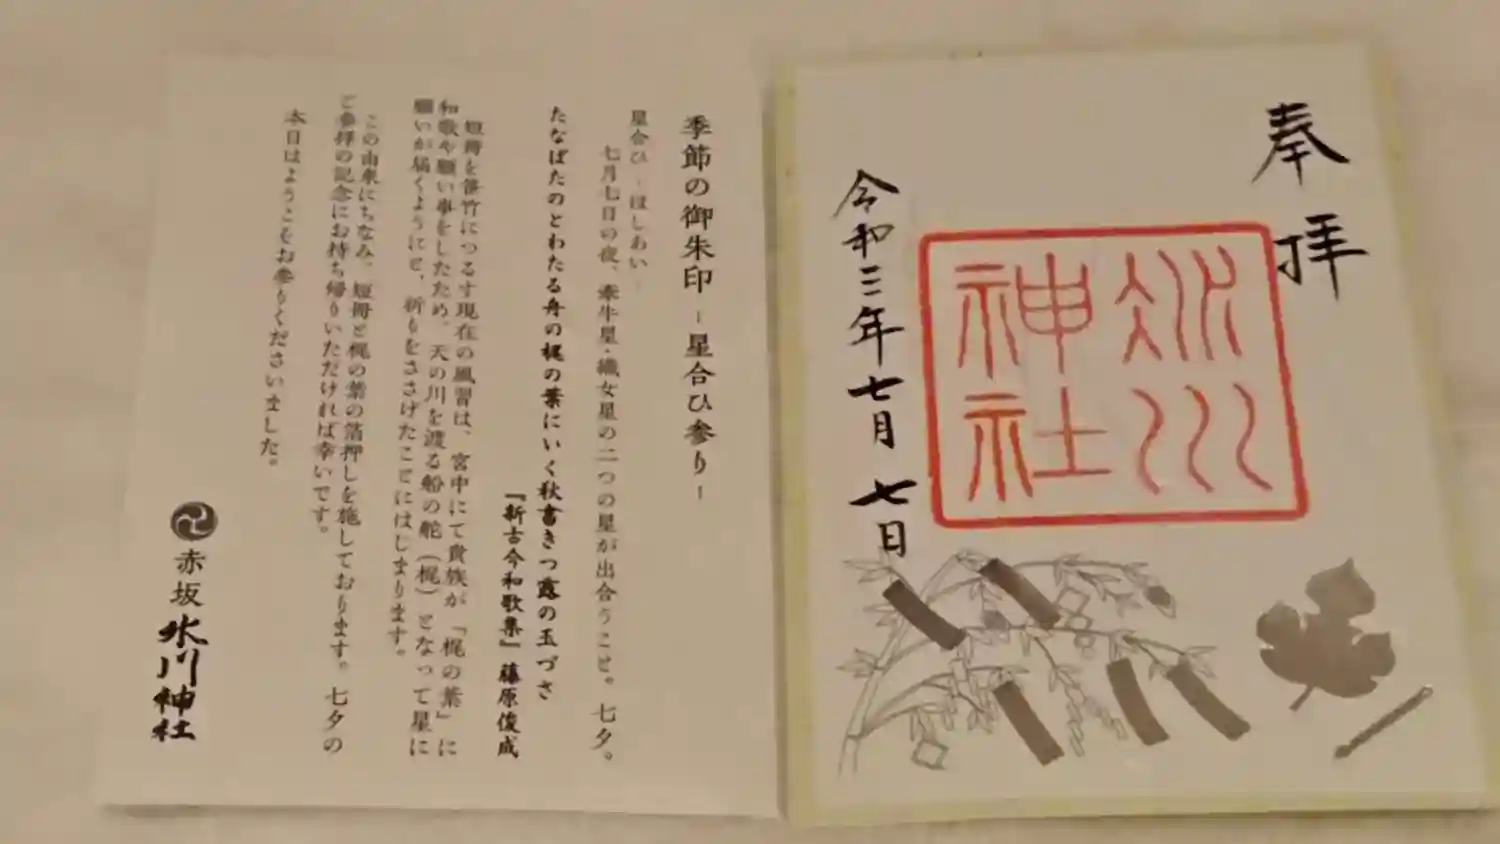 奉拝
氷川
神社
令和三年七月七日
季節の御朱印 - 星合ひ参り -
星合ひ - ほしあい -
七月七日の夜、牽牛星・織女星の二つの星が出合うこと。七夕。
たなばたのとわたる舟の梶の葉にいく秋書きつ露の玉づさ
『新古今和歌集』藤原俊成
短冊を笹竹につるす現在の風習は、宮中にて貴族が「梶の葉」に
和歌や願い事をしたため、天の川を渡る船の舵（梶）となって星に
願いが届くようにと、祈りをささげたことにはじまります。
この由来にちなみ、短冊と梶の葉の箔押しを施しております。七夕の
ご参拝の記念にお持ち帰りいただければ幸いです。
本日はようこそお参りくださいました。
赤坂氷川神社